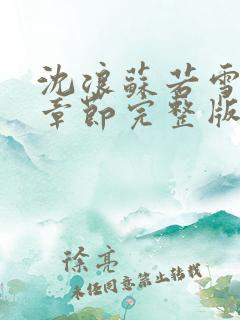 沈浪蘇若雪
章節完整版
徐亮
未经同意禁止转载